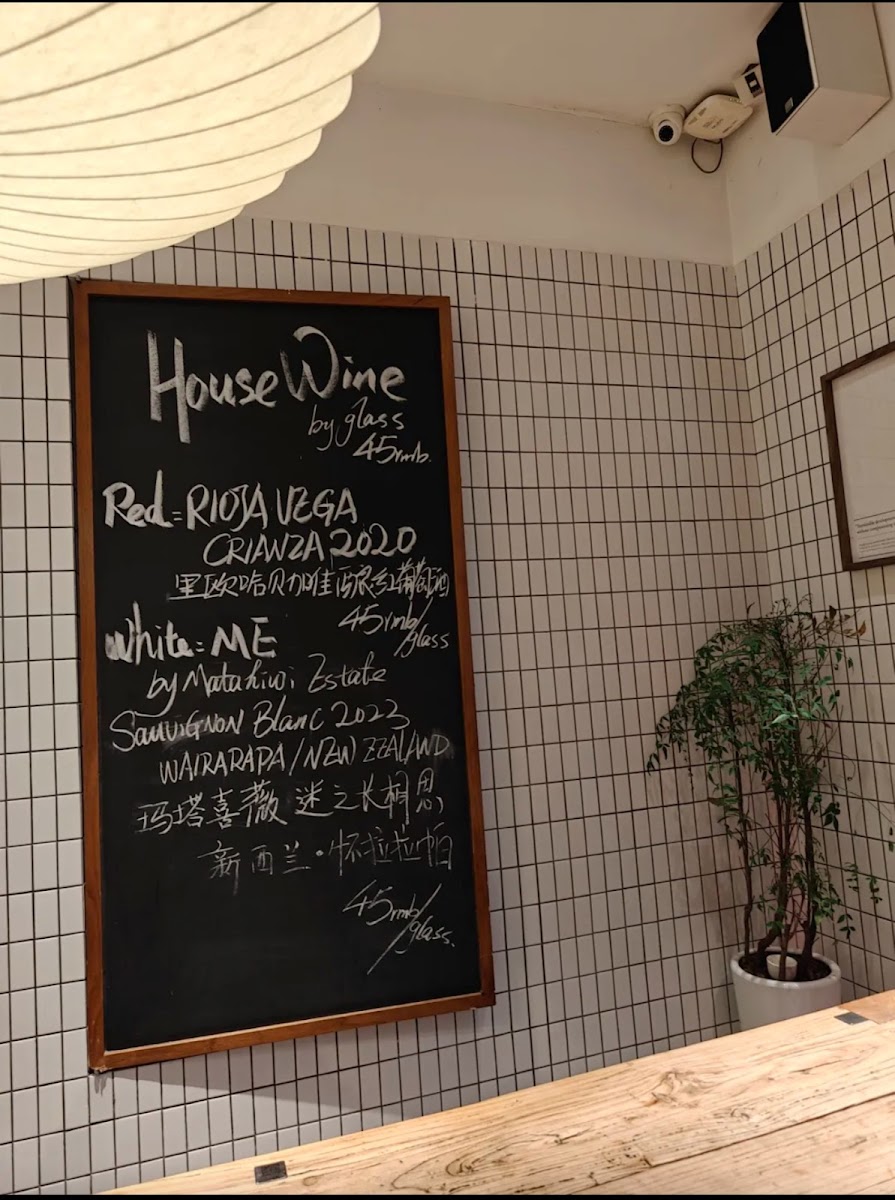 House Wine
by glass
45rmb.
Red = RIOJA VEGA
CRIANZA 2020
里欧哈贝加唯酿红葡萄酒
45rmb/glass
White = ME
by Matahiwi Estate
Sauvignon Blanc 2023
WAIRARAPA/NEW ZEALAND
玛塔喜薇 迷之长相思
新西兰·怀拉拉帕
45rmb/glass.